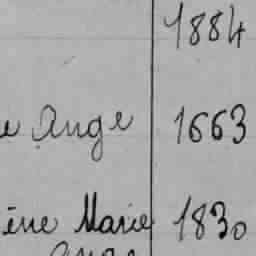 1884
e Ange 1663
ène Marie 1830
Ange